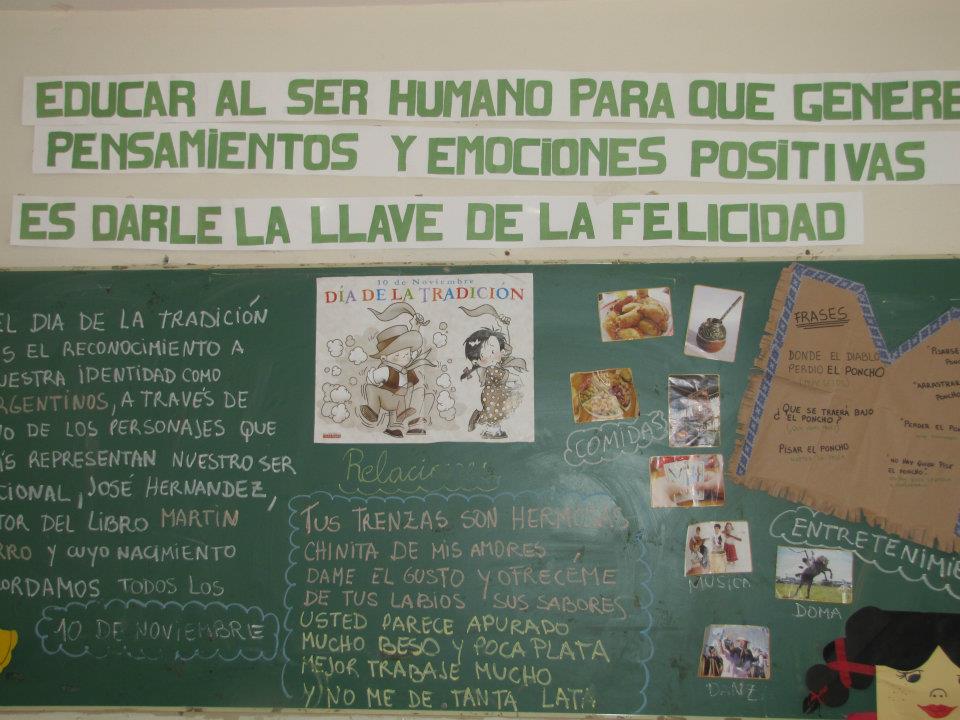 EDUCAR AL SER HUMANO PARA QUE GENERE
PENSAMIENTOS Y EMOCIONES POSITIVAS
ES DARLE LA LLAVE DE LA FELICIDAD
EL DIA DE LA TRADICIÓN
ES EL RECONOCIMIENTO A
UESTRA IDENTIDAD COMO
RGENTINOS, A TRAVÉS DE
NO DE LOS PERSONAJES QUE
ÁS REPRESENTAN NUESTRO SER
CIONAL, JOSÉ HERNANDEZ,
TOR DEL LIBRO MARTIN
RRO Y CUYO NACIMIENTO
ORDAMOS TODOS LOS
10 DE NOVIEMBRE
10 de Noviembre
DÍA DE LA TRADICIÓN
TUS TRENZAS SON HERMOSAS
CHINITA DE MIS AMORES
DAME EL GUSTO Y OFRECÉME
DE TUS LABIOS SUS SABORES
USTED PARECE APURADO
MUCHO BESO Y POCA PLATA
MEJOR TRABAJE MUCHO
Y NO ME DE TANTA LATA
COMIDAS
MUSICA
DANZ
FRASES
DONDE EL DIABLO
PERDIO EL PONCHO
¿QUE SE TRAERÁ BAJO
EL PONCHO?
PISAR EL PONCHO
"PISARSE
"ARRASTRAR
PONCHO
"PERDER EL PO
"NO HAY QUIEN PISE
EL PONCHO"
ENTRETENIMIE
DOMA